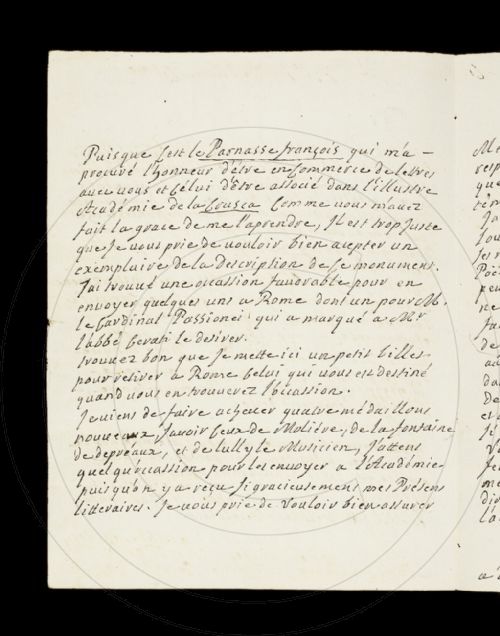 Puisque C'est le Parnasse françois qui m'a –
procuré l'honneur d'être en Commerce de lettres
avec vous et Celui d'être associé dans l'illustre
Académie de la Crusca Comme vous m'avez
fait la grace de me l'aprendre, Il est trop Juste
que Je vous prie de vouloir bien acepter un
exemplaire de la Description de Ce monument.
J'ai trouvé une occassion favorable pour en
envoyer quelques uns a Rome dont un pour M.
le Cardinal Passionei qui a marqué a Mr
l'abbé Cerati le desirer.
trouvez bon que Je mette ici un petit billet
pour retirer a Rome Celui qui vous est destiné
quand vous en trouverez l'occassion.
Je viens de faire achever quatre médaillons
nouveaux Savoir Ceux de Moliére, de la fontaine
de depréaux, et de lully le Musicien, J'attens
quelqu'occassion pour les envoyer a l'Académie
puisqu'on y a reçu Si gracieusement mes Présens
litteraires. Je vous prie de vouloir bien assurer